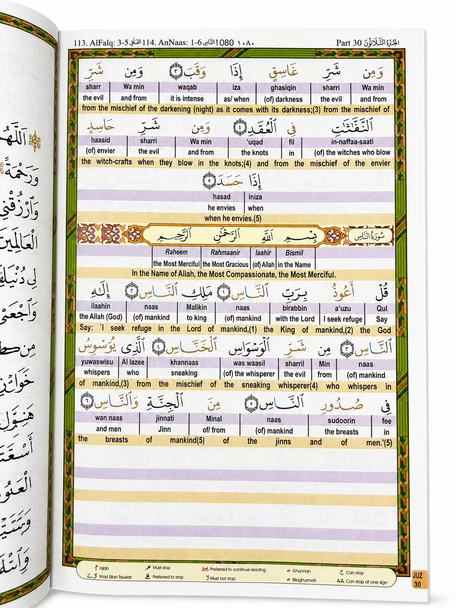 113. AlFalq: 3-5 الفلق 114. AnNaas: 1-6 الناس 1080 ١٠٨٠ Part 30 الجزء الثلاثون
وَمِن شَرِّ غَاسِقٍ إِذَا وَقَبَ ٣ وَمِن شَرِّ
sharr Wa min waqab iza ghasiqin sharri Wa min
the evil and from it is intense as/ when (of) darkness the evil and from
from the mischief of the darkening (night) as it comes with its darkness;(3) from the mischief of
النَّفَّاثَاتِ فِي الْعُقَدِ ٤ وَمِن شَرِّ حَاسِدٍ
haasid sharri Wa min 'uqad fil in-naffaa-saati
(of) envier the evil and from the knots in (of) the witches who blow
the witch-crafts when they blow in the knots;(4) and from the mischief of the envier
إِذَا حَسَدَ ٥
hasad iniza
he envies when
when he envies.(5)
سُورَةُ النَّاسِ بِسْمِ اللَّهِ الرَّحْمَٰنِ الرَّحِيمِ
Raheem Rahmaanir laahir Bismil
the Most Merciful the Most Gracious (of) Allah in the Name
In the Name of Allah, the Most Compassionate, the Most Merciful.
قُلْ أَعُوذُ بِرَبِّ النَّاسِ ١ مَلِكِ النَّاسِ ٢ إِلَٰهِ
ilaahin naas Malikin naas birabbin a'uzu Qul
the Allah (God) (of) mankind to king (of) mankind with the Lord I seek refuge Say
Say: `I seek refuge in the Lord of mankind,(1) the King of mankind,(2) the God
النَّاسِ ٣ مِن شَرِّ الْوَسْوَاسِ الْخَنَّاسِ ٤ الَّذِي يُوَسْوِسُ
yuwaswisu Al lazee khannaas was waasil sharril Min naas
whispers who sneaking (of) the whisperer the evil from (of) mankind
of mankind,(3) from the mischief of the sneaking whisperer(4) who whispers in
فِي صُدُورِ النَّاسِ ٥ مِنَ الْجِنَّةِ وَالنَّاسِ ٦
wan naas jinnati Minal naas sudoorin fee
and men Jinn of/ from (of) mankind the breasts in
the breasts of mankind(5) of the jinns and of men.'(5)
Iqlab Must stop Preferred to continue reading Ghunnah Can stop
Mad Silah Tawilah Preferred to stop Must not stop Bilaghunnah Can stop at one sign
JUZ
30